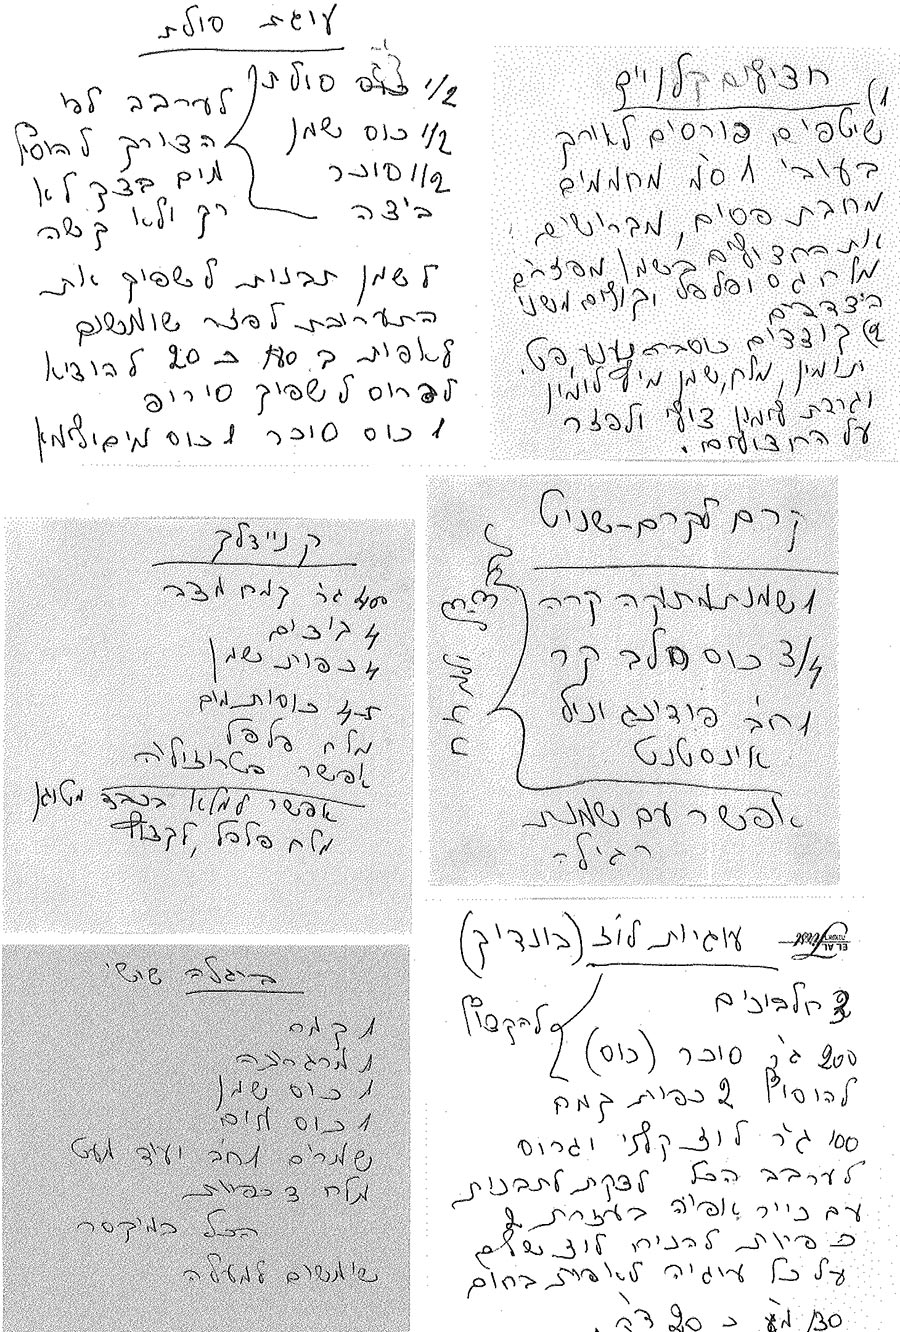 עוגת סולת
1/2 כוס סולת
1/2 כוס שמן
1/2 סוכר
ביצה
לערבב לפי
הצורך להוסיף
מים בצק לא
רק ולא קשה
לשמן תבנית לשפוך את
התערובת לפזר שומשום
לאפות ב 180 כ 20 להוציא
לפרוס לשפוך סירופ
1 כוס סוכר 1 כוס מים ולימון
חצילים קלויים
1) שוטפים פורסים לאורך
בעובי 1 ס"מ מחממים
מחבת פסים, מברישים
את החצילים בשמן מפזרים
מלח גס ופלפל וקולים משני
הצדדים
2) קוצצים כוסברה נענע פט.
תומין, מלח, שמן מיץ לימון
וגרדת לימון ולפזר
על החצילים.
קניידלך
400 גר קמח מצה
4 ביצים
4 כפות שמן
כוסות מים
מלח פלפל
אפשר פטרוזיליה
אפשר למלא בכבד מטוגן
מלח פלפל, לקצוץ
קרם לקרם-שניט
1 שמנת מתוקה קרה
3/4 כוס חלב קר
1 חב' פודינג וניל
אינסטנט
אפשר עם שמנת
רגילה
בייגלה שושי
1 קמח
1 מרגרינה
1 כוס שמן
1 כוס מים
שמרים 1 חב' ועוד מעט
מלח 3 כפיות
הכל במיקסר
שומשום למעלה
עוגיות לוז (בונדיק)
ELAL
3 חלבונים
200 ג"ר סוכר (כוס)
להקציף
להוסיף 2 כפות קמח
100 ג"ר לוז קלוי וגרוס
לערבב הכל לצקת לתבנית
עם נייר אפיה בעזרת 2
כפיות להניח לוז שלם
על כל עוגיה לאפות בחום
130 מע' כ 20 דק'.